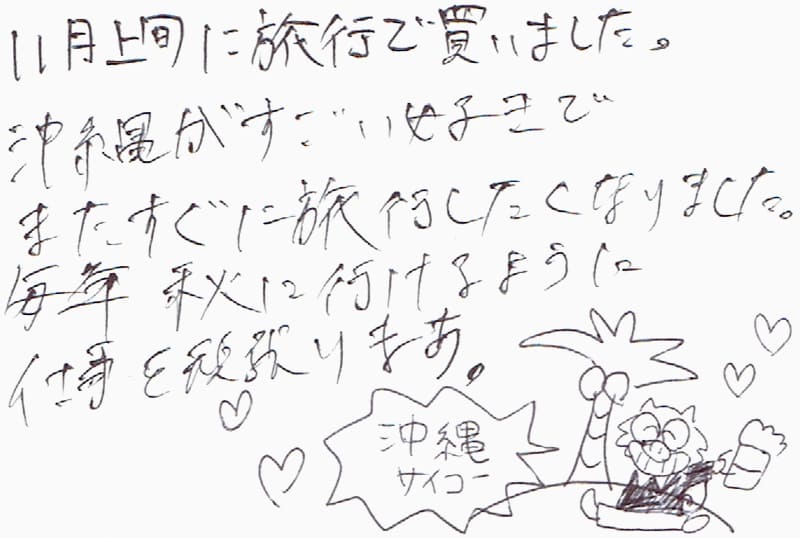 11月上旬に旅行で買いました。
沖縄がすごい好きで
またすぐに旅行したくなりました。
毎年 秋に行けるように
仕事を頑張りまあ。
沖縄
サイコー